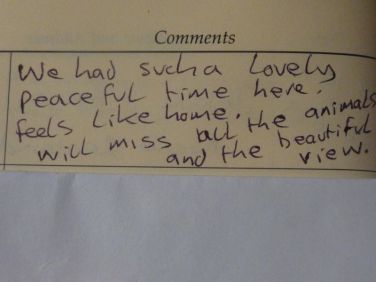 Comments
We had such a lovely
peaceful time here.
feels like home.
will miss all the animals
and the beautiful
view.